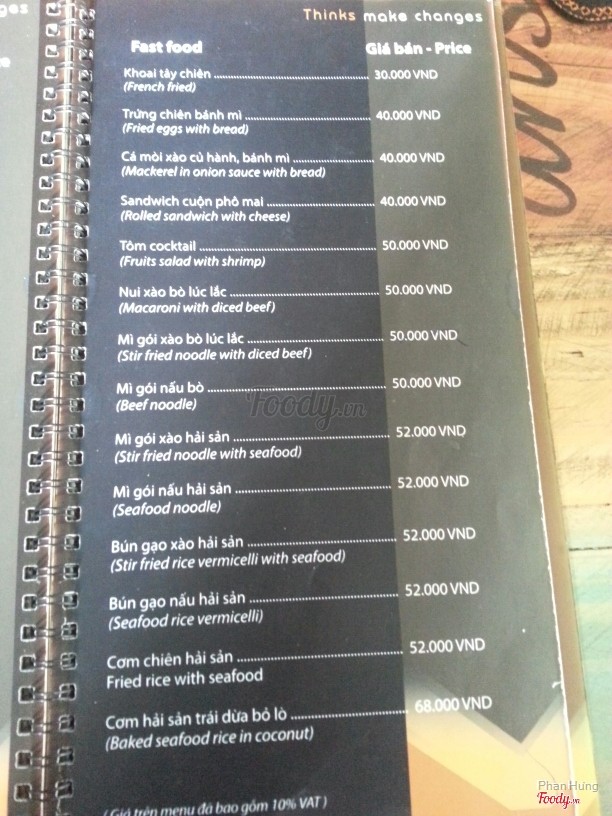 ges
Thinks make changes
Fast food Giá bán - Price
Khoai tây chiên 30.000 VND
(French fried)
Trứng chiên bánh mì 40.000 VND
(Fried eggs with bread)
Cá mòi xào củ hành, bánh mì 40.000 VND
(Mackerel in onion sauce with bread)
Sandwich cuộn phô mai 40.000 VND
(Rolled sandwich with cheese)
Tôm cocktail 50.000 VND
(Fruits salad with shrimp)
Nui xào bò lúc lắc 50.000 VND
(Macaroni with diced beef)
Mì gói xào bò lúc lắc 50.000 VND
(Stir fried noodle with diced beef)
Mì gói nấu bò 50.000 VND
(Beef noodle)
Foody.vn
Mì gói xào hải sản 52.000 VND
(Stir fried noodle with seafood)
Mì gói nấu hải sản 52.000 VND
(Seafood noodle)
Bún gạo xào hải sản 52.000 VND
(Stir fried rice vermicelli with seafood)
Bún gạo nấu hải sản 52.000 VND
(Seafood rice vermicelli)
Cơm chiên hải sản 52.000 VND
Fried rice with seafood
Cơm hải sản trái dừa bỏ lò 68.000 VND
(Baked seafood rice in coconut)
(Giá trên menu đã bao gồm 10% VAT)
Phan Hưng
Foody.vn